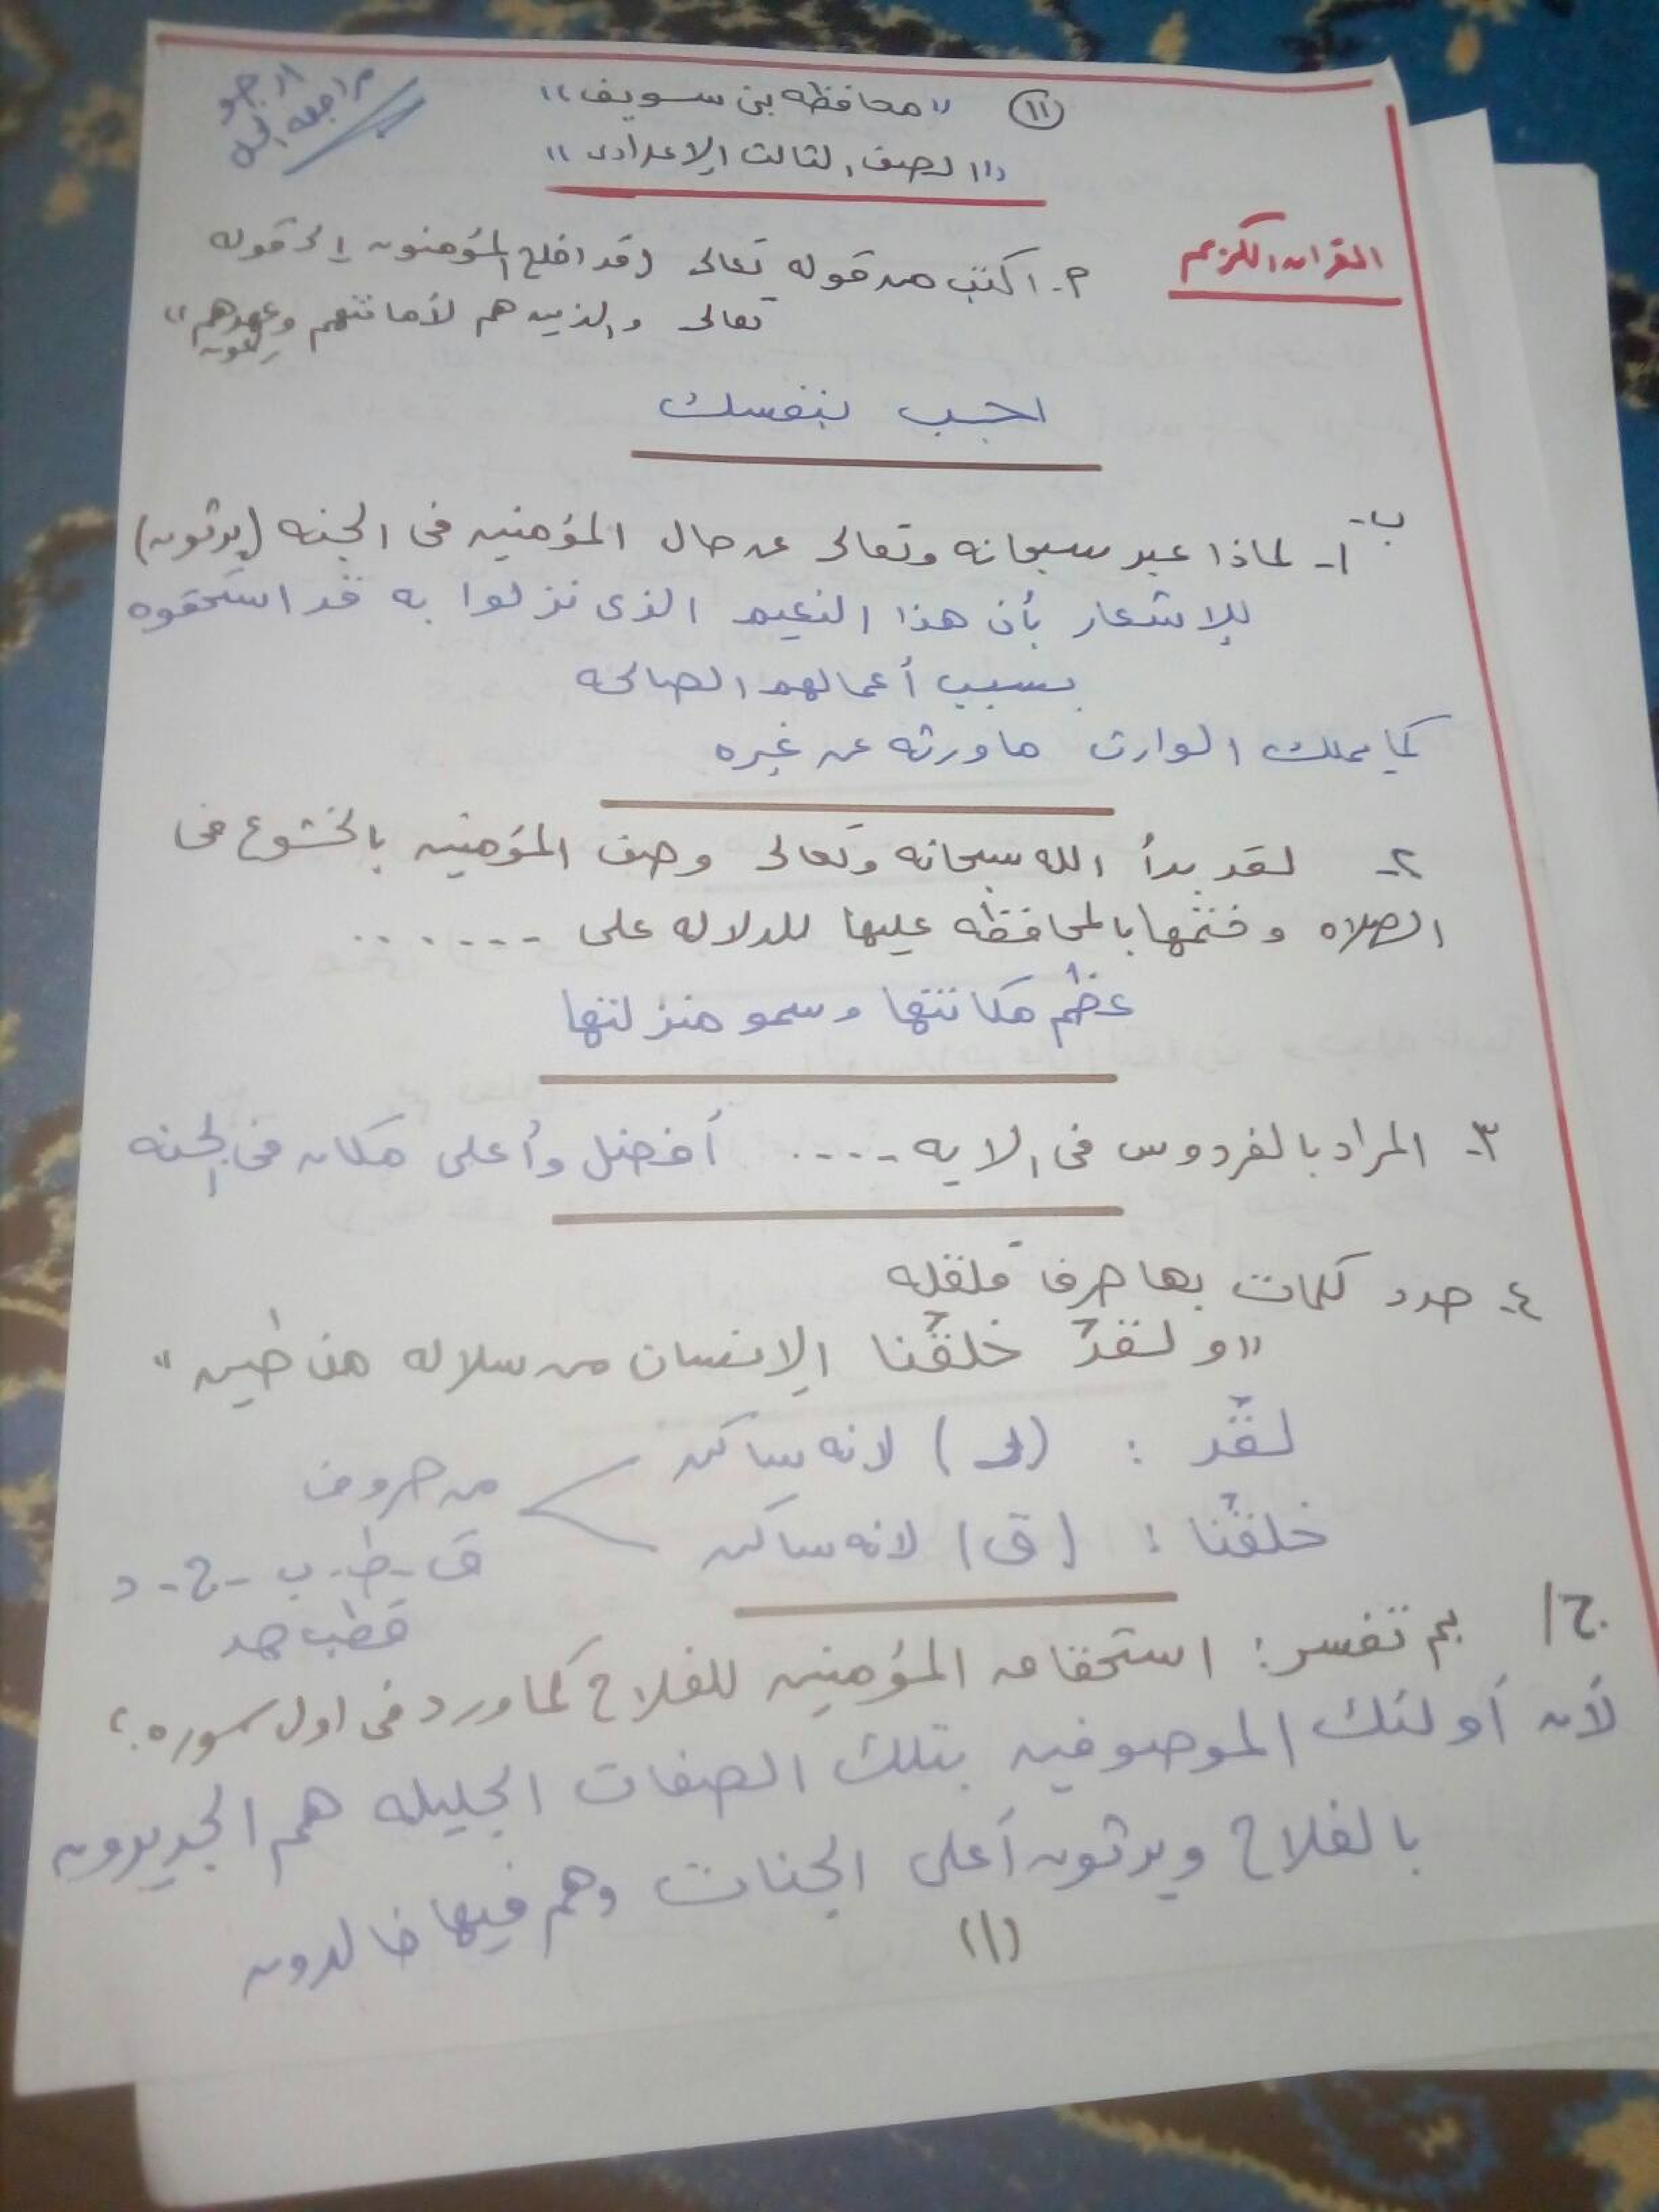 ارجو
مراجعة الحل
(١١) "محافظه بنى سويف"
"الصف الثالث الإعدادى"
القران الكريم
م- اكتب من قوله تعالى (قد افلح المؤمنون إلى قوله
تعالى والذين هم لأماناتهم وعهدهم"
راعون
اجب بنفسك
ب-
١- لماذا عبر سبحانه وتعالى عن حال المؤمنين فى الجنه (يرثون)
للإشعار بأن هذا النعيم الذى نزلوا به قد استحقوه
بسبب أعمالهم الصالحه
كما يملك الوارث ما ورثه عن غيره
٢- لقد بدأ الله سبحانه وتعالى وصف المؤمنين بالخشوع فى
الصلاه وختمها بالمحافظه عليها للدلاله على .......
عظم مكانتها وسمو منزلتها
٣- المراد بالفردوس فى الايه ..... أفضل وأعلى مكان فى الجنه
٤- حدد كلمات بها حرف قلقله
"ولقد خلقنا الإنسان من سلاله من طين"
لقد : (د) لانه ساكن
خلقنا : (ق) لانه ساكن
من حروف
ق - ط - ب - ج - د
قطب جد
ج/ بم تفسر: استحقاق المؤمنين للفلاح كما ورد فى اول سوره؟
لأن أولئك الموصوفين بتلك الصفات الجليله هم الجديرون
بالفلاح ويرثون أعلى الجنات وهم فيها خالدون
(١)